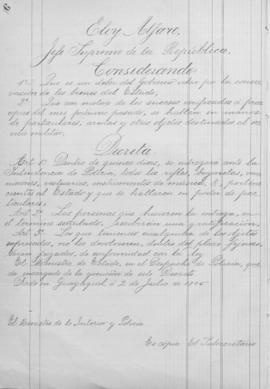 Eloy Alfaro,
Jefe Supremo de la República,
Considerando
1º Que es un deber del Gobierno velar por la conser-
vación de los bienes del Estado;
2º Que con motivo de los sucesos verificados á
del mes próximo pasado, se hallan en manos
de particulares, armas y otros objetos destinados al ser-
vicio militar,
Decreta.
Art. 1º Dentro de quince días, se entregará ante la
Intendencia de Policía, todos los rifles, bayonetas, mu-
niciones, vestuarios, instrumentos de música, &, pertene-
cientes al Estado y que se hallaren en poder de par-
ticulares.
Art. 2º Las personas que hicieren la entrega, en
el término estipulado, recibirán una gratificación.
Art. 3º Los que teniendo cualquiera de los objetos
expresados, no los devolvieren, dentro del plazo fijado,
serán juzgados, de conformidad con la ley.
El Ministro de Estado, en el Despacho de Policía, que-
da encargado de la ejecución de este Decreto.
Dado en Guayaquil, á 2 de Julio de 1895
El Ministro de lo Interior y Policía
Es copia El Subsecretario